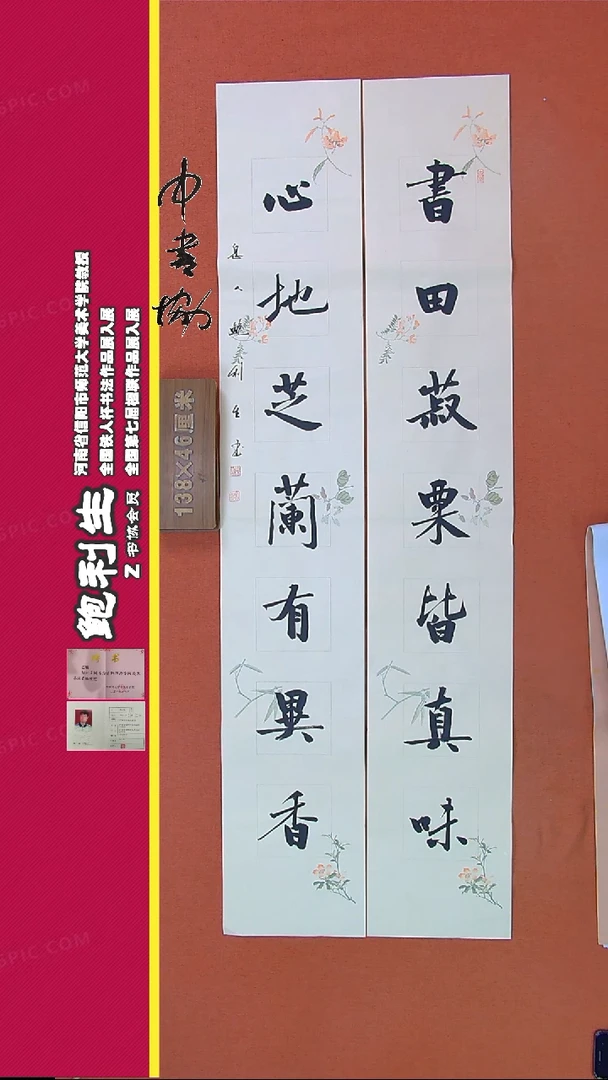 書田菽粟皆真味
心地芝蘭有異香
中书协
138X46厘米
河南省信阳市师范大学美术学院教授
全国第七届楹联作品展入展
鲍利生
Z书协会员
SPIC.COM
SPIC.COM